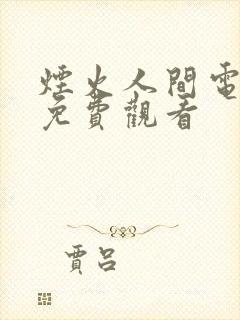 煙火人間電
免費觀看
賈呂